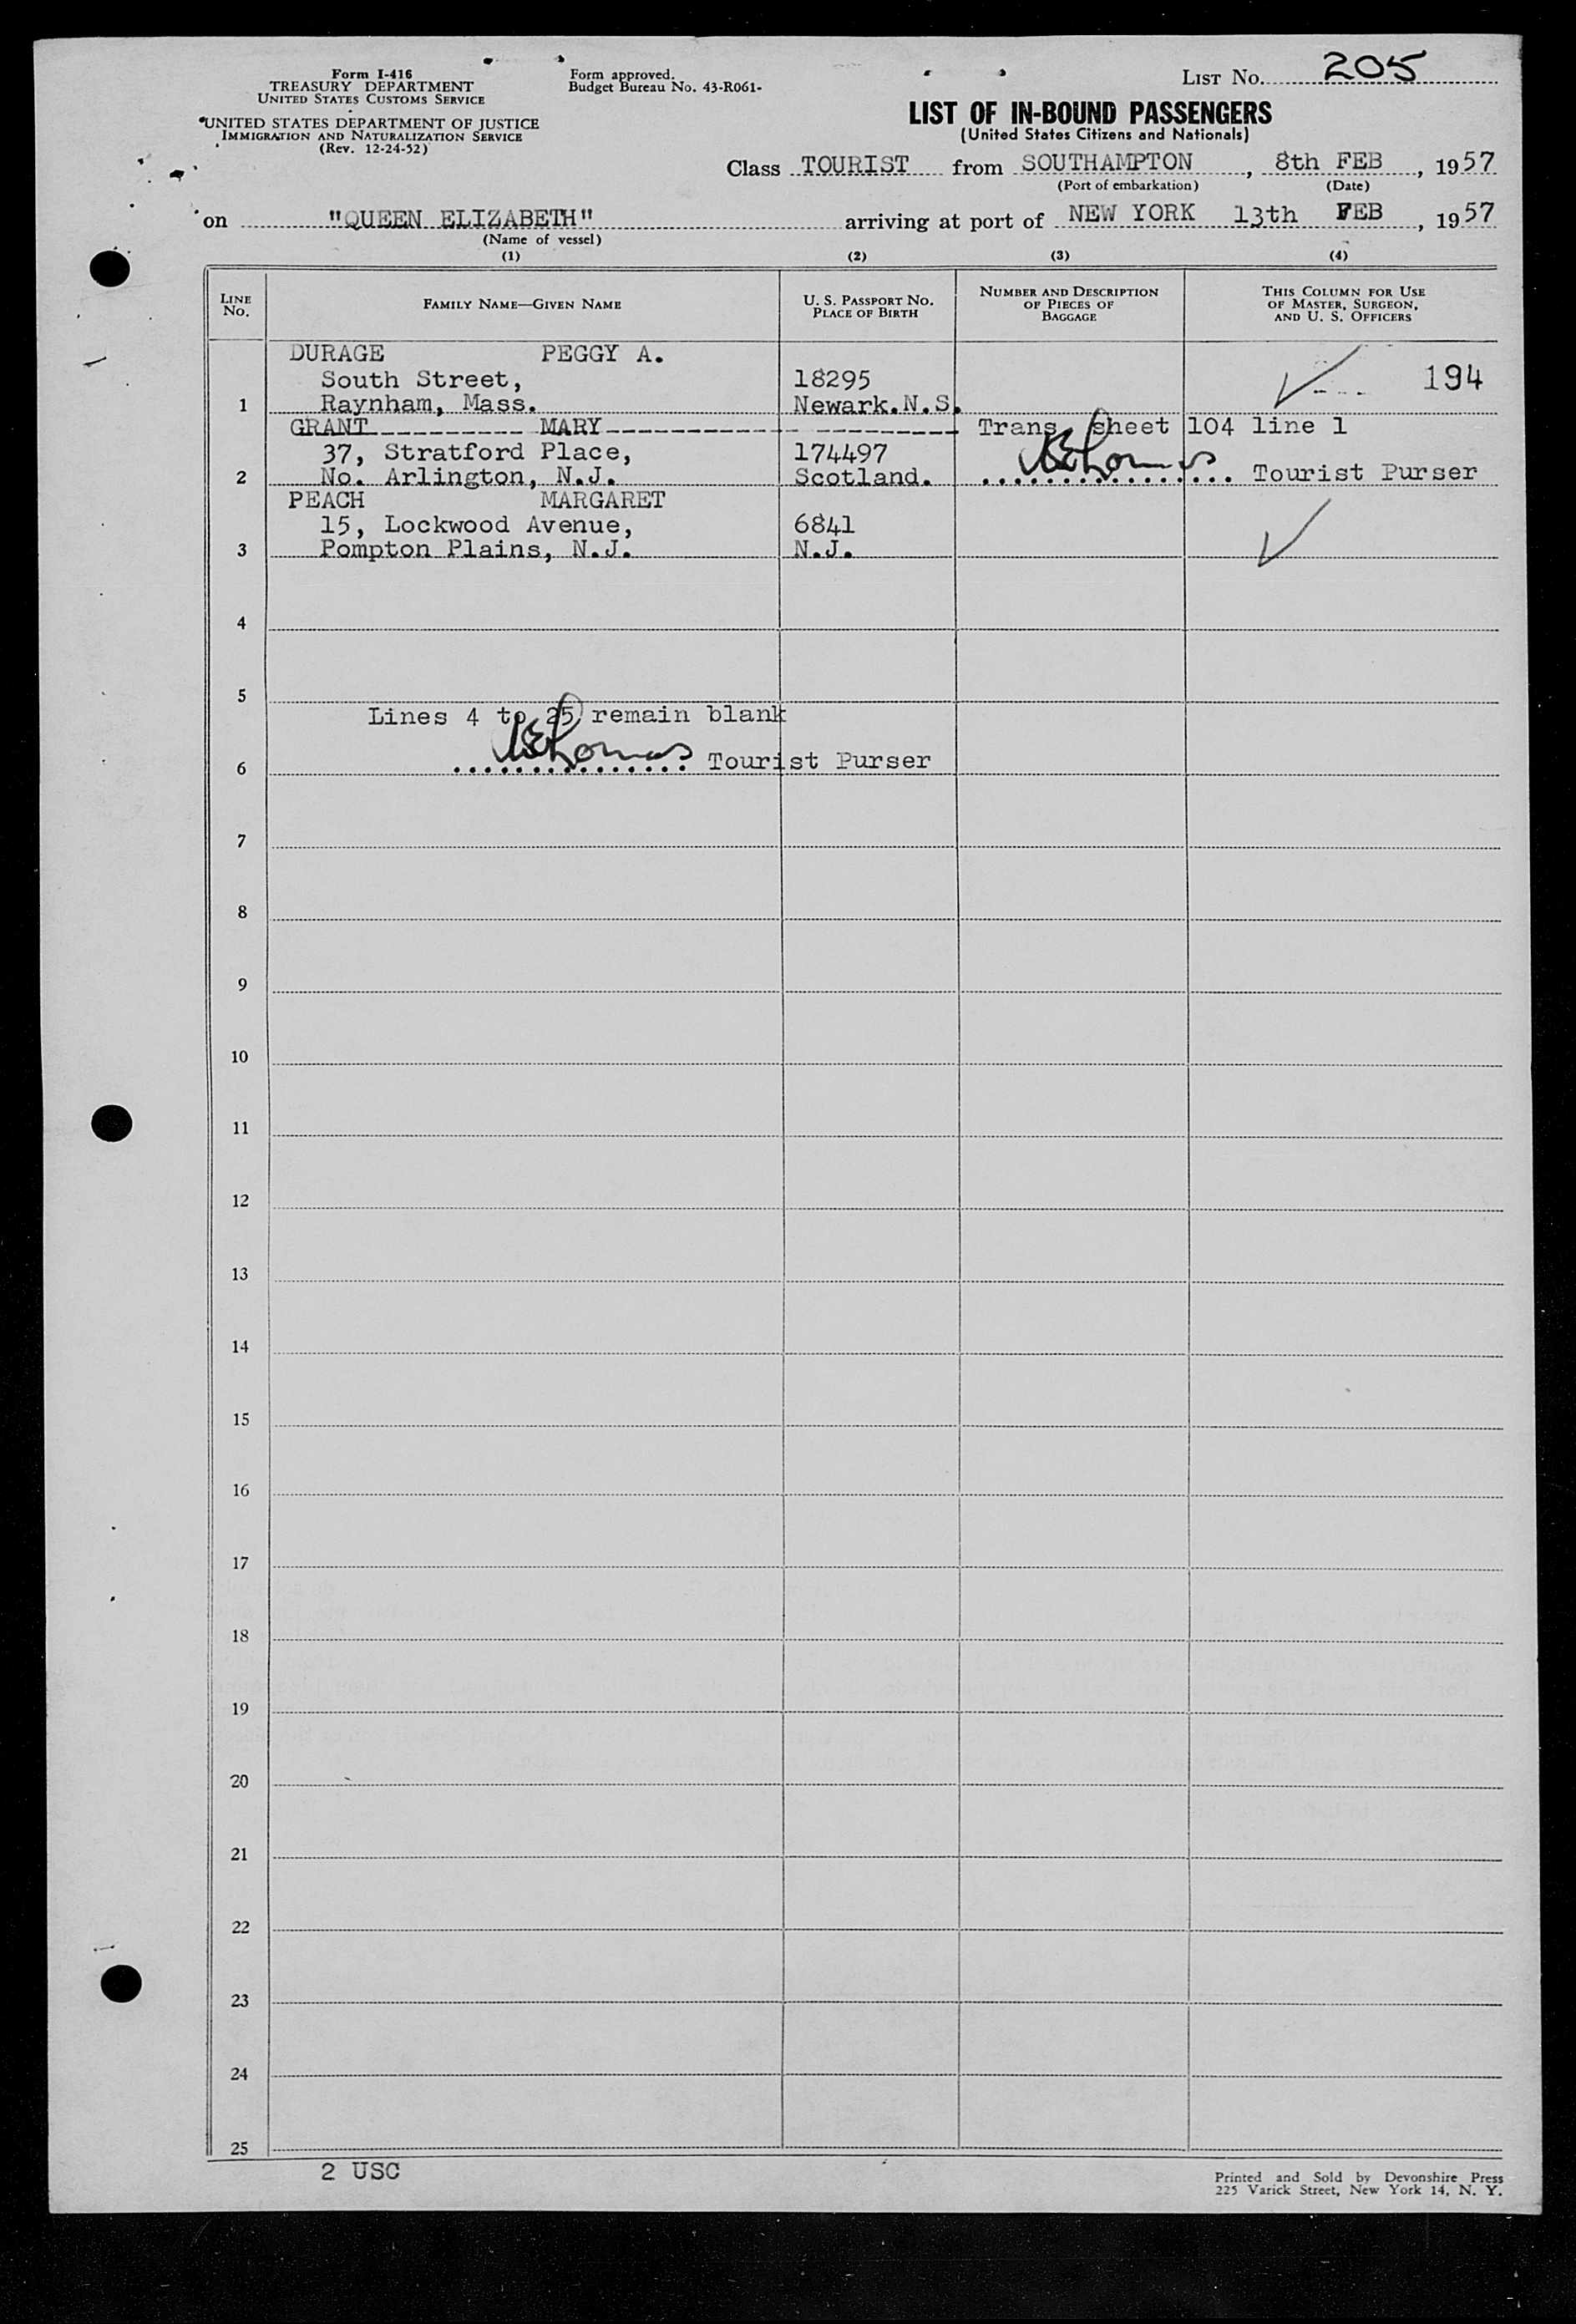 Form I-416
TREASURY DEPARTMENT
UNITED STATES CUSTOMS SERVICE
UNITED STATES DEPARTMENT OF JUSTICE
IMMIGRATION AND NATURALIZATION SERVICE
(Rev. 12-24-52)
Form approved.
Budget Bureau No. 43-R061-
LIST NO. 205
LIST OF IN-BOUND PASSENGERS
(United States Citizens and Nationals)
Class TOURIST from SOUTHAMPTON, 8th FEB, 1957
(Port of embarkation) (Date)
on "QUEEN ELIZABETH" arriving at port of NEW YORK 13th FEB, 1957
(Name of vessel)
(1) (2) (3) (4)
LINE NO.
FAMILY NAME—GIVEN NAME
U. S. PASSPORT NO. PLACE OF BIRTH
NUMBER AND DESCRIPTION OF PIECES OF BAGGAGE
THIS COLUMN FOR USE OF MASTER, SURGEON, AND U. S. OFFICERS
DURAGE PEGGY A.
South Street, 18295 194
1 Raynham, Mass. Newark.N.S.
GRANT---------- MARY---------------------- Trans sheet 104 line 1
37, Stratford Place, 174497
2 No. Arlington, N.J. Scotland. ................ Tourist Purser
PEACH MARGARET
15, Lockwood Avenue, 6841
3 Pompton Plains, N.J. N.J.
4
5
Lines 4 to 25 remain blank
6 ............... Tourist Purser
7
8
9
10
11
12
13
14
15
16
17
18
19
20
21
22
23
24
25
2 USC
Printed and Sold by Devonshire Press
225 Varick Street, New York 14, N. Y.